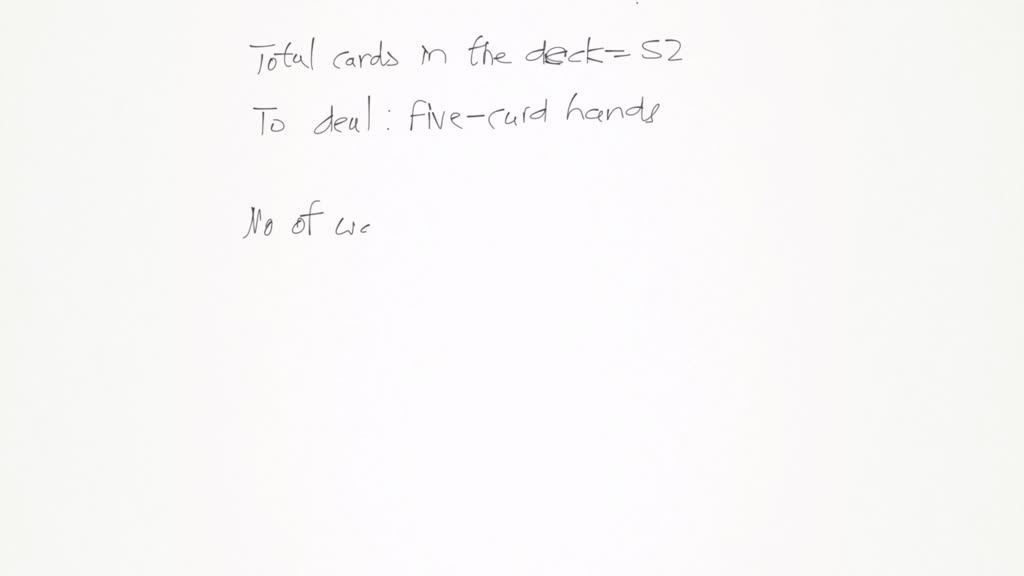 Total cards in the deck = 52
To deal : five-card hands
No of wa